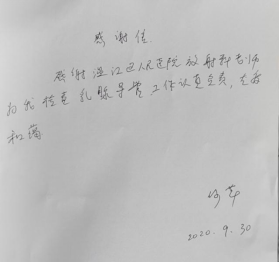 感谢信
感谢温江区人民医院放射科老师
为我检查乳腺导管工作认真负责，态度
和蔼
2020.9.30